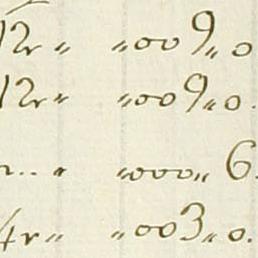 12r „ „009„0
12r „ „009„0.
r... „ „000„ 6.
4r „ „003„0.